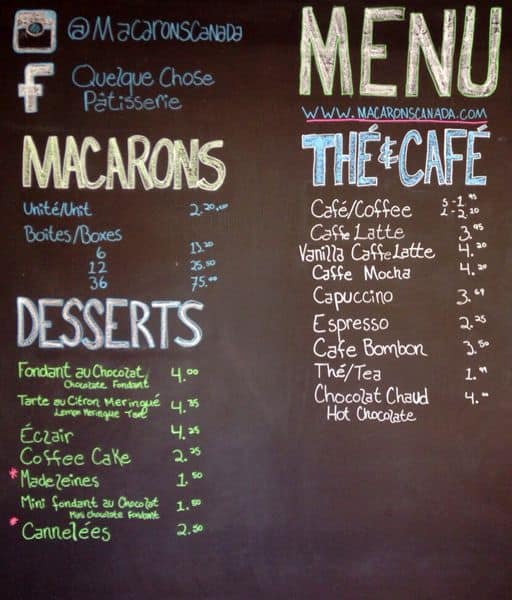 @MacaronsCanada
Quelque Chose
Pâtisserie
MACARONS
Unité/Unit 2.20
Boîtes/Boxes
6 13.20
12 25.50
36 75.00
DESSERTS
Fondant au Chocolat 4.00
Chocolate Fondant
Tarte au Citron Meringué 4.75
Lemon Meringue Tart
Éclair 4.25
Coffee Cake 2.25
* Madeleines 1.50
Mini fondant au Chocolat 1.50
Mini Chocolate Fondant
* Cannelées 2.50
MENU
WWW.MACARONSCANADA.COM
THÉ & CAFÉ
Café/Coffee S-1.95
L-2.20
Caffe Latte 3.95
Vanilla Caffe Latte 4.20
Caffe Mocha 4.20
Capuccino 3.69
Espresso 2.25
Cafe Bombon 3.50
Thé/Tea 1.99
Chocolat Chaud 4.00
Hot Chocolate